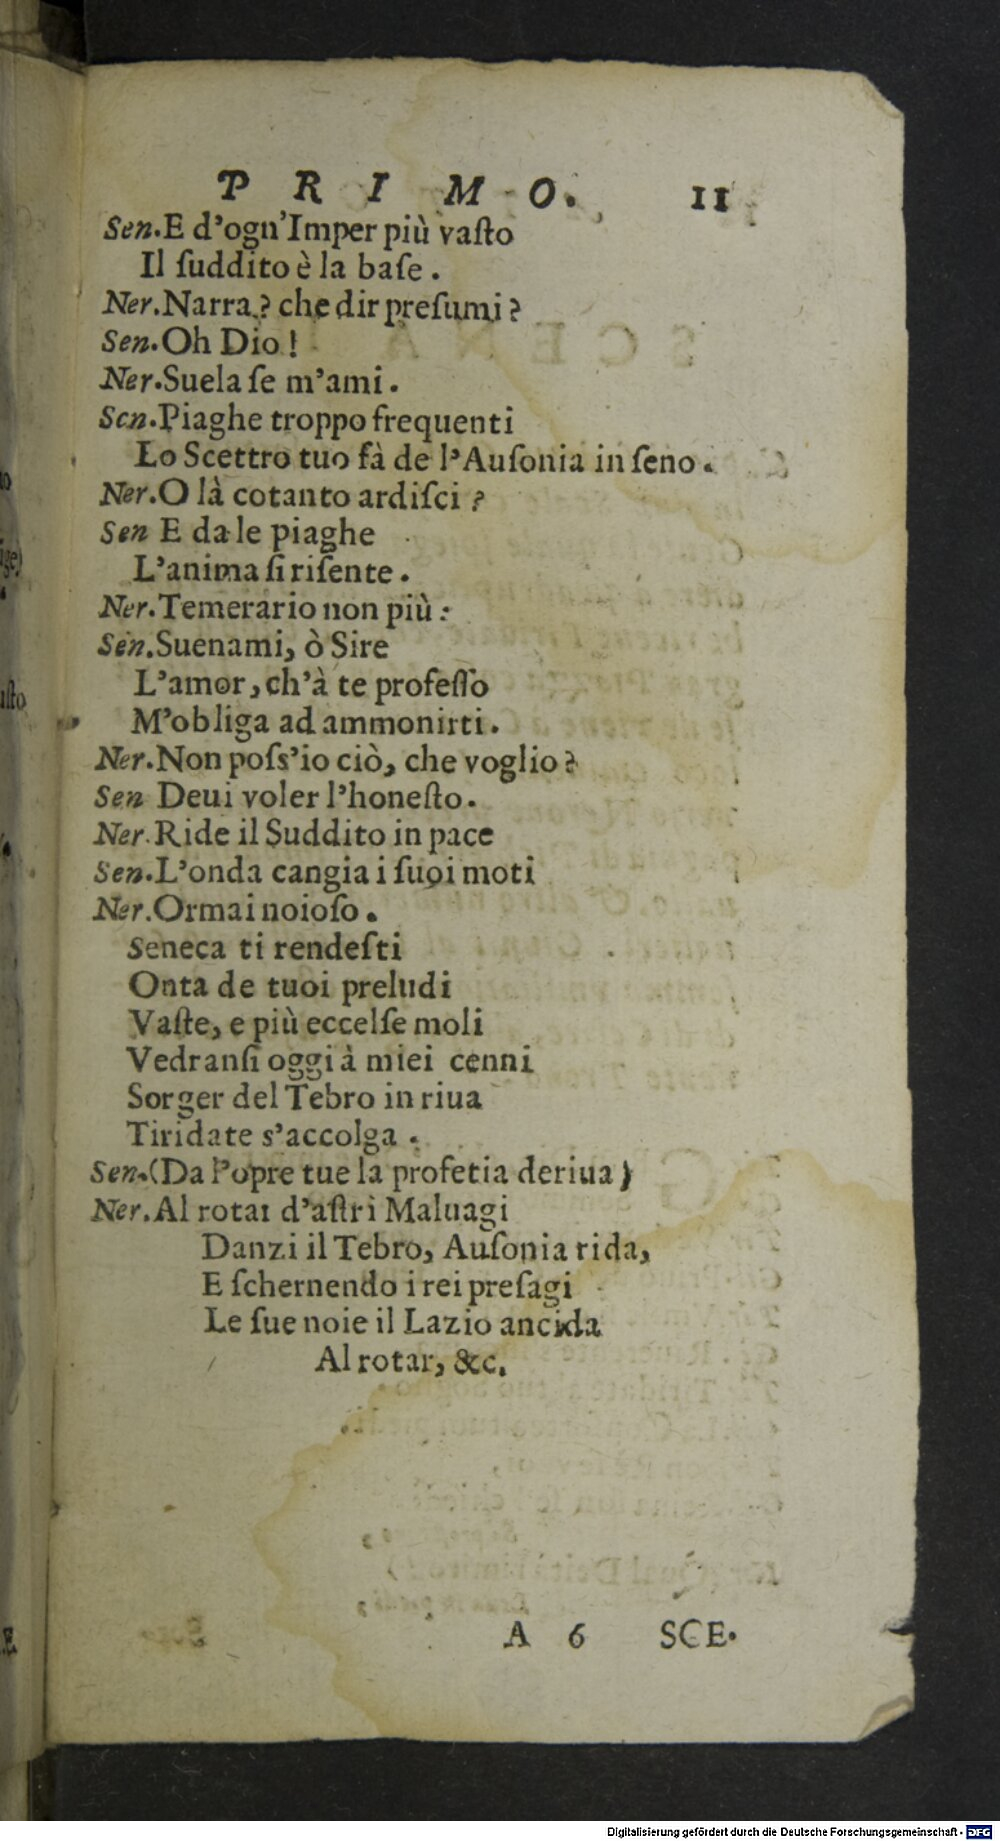 PRIMO. 11
Sen.E d'ogn'Imper più vaſto
Il ſuddito è la baſe.
Ner.Narra? che dir preſumi?
Sen.Oh Dio!
Ner.Suela ſe m'ami.
Sen.Piaghe troppo frequenti
Lo Scettro tuo fà de l'Auſonia in ſeno.
Ner.O là cotanto ardiſci?
Sen E da le piaghe
L'anima ſi riſente.
Ner.Temerario non più:
Sen.Suenami, ò Sire
L'amor, ch'à te profeſſo
M'obliga ad ammonirti.
Ner.Non poſs'io ciò, che voglio?
Sen Deui voler l'honeſto.
Ner.Ride il Suddito in pace
Sen.L'onda cangia i ſuoi moti
Ner.Ormai noioſo.
Seneca ti rendeſti
Onta de tuoi preludi
Vaſte, e più eccelſe moli
Vedranſi oggi à miei cenni
Sorger del Tebro in riua
Tiridate s'accolga.
Sen.(Da l'opre tue la profetia deriua)
Ner.Al rotar d'aſtri Maluagi
Danzi il Tebro, Auſonia rida,
E ſchernendo i rei preſagi
Le ſue noie il Lazio ancida
Al rotar, &c.
A 6 SCE.
Digitalisierung gefördert durch die Deutsche Forschungsgemeinschaft - DFG